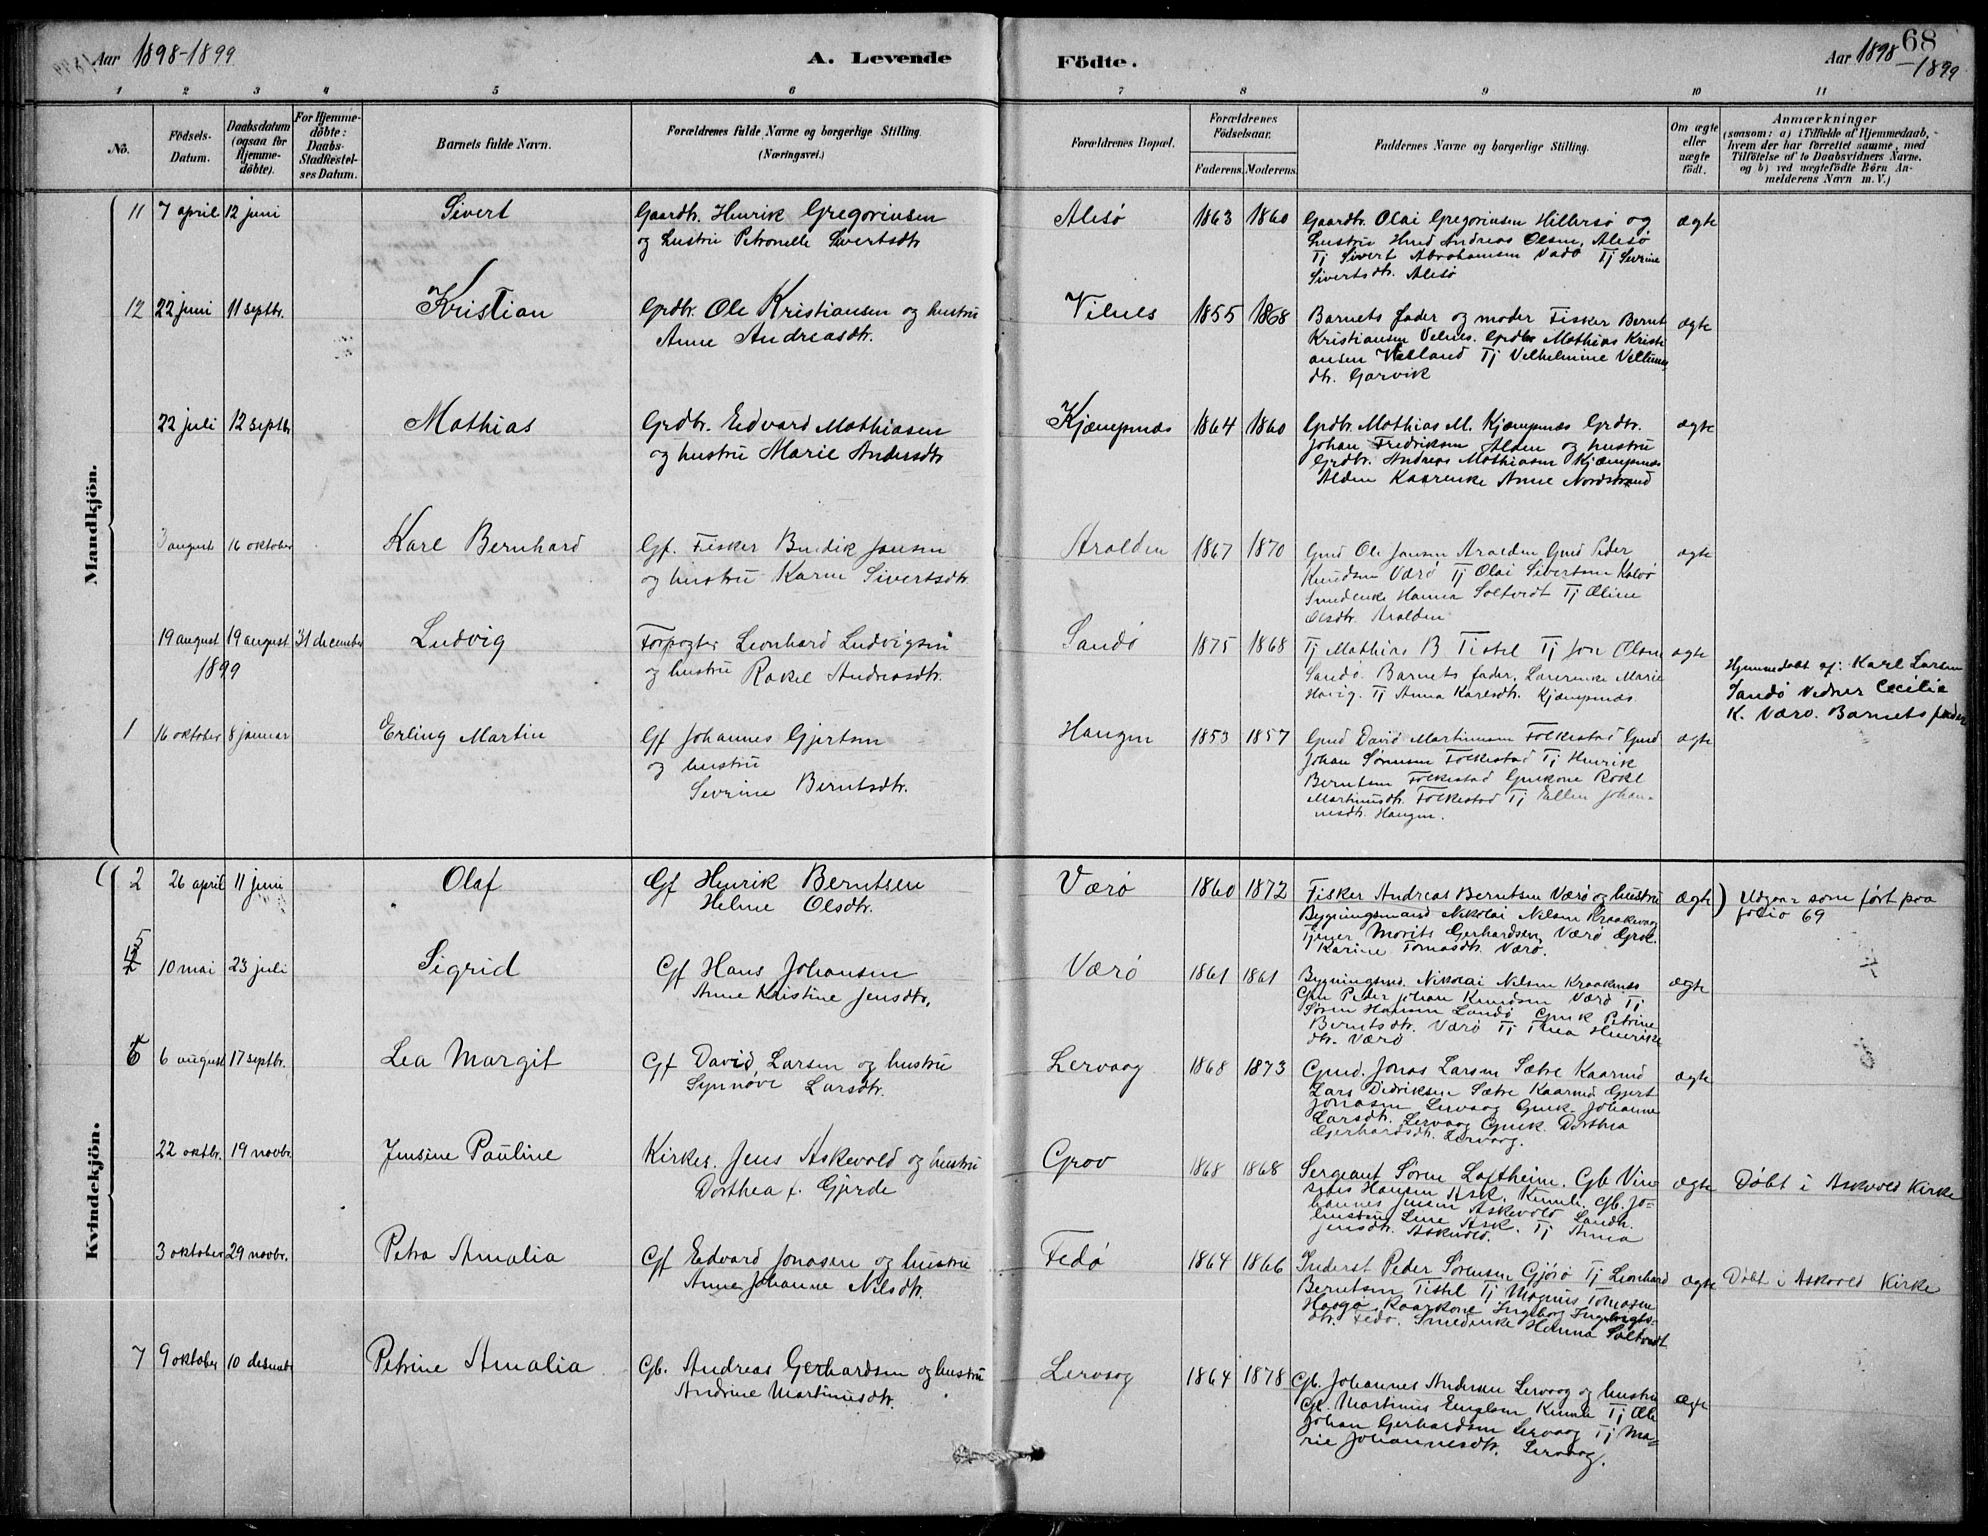 Aar 1898-1899
A. Levende
Födte.
68
Aar 1898-1899
1 2 3 4 5 6 7 8 9 10 11
No.
Födsels-Datum.
Daabsdatum (ogsaa for Hjemme-döbte).
For Hjemme-döbte: Daabs-Stadfæstel-ses Datum.
Barnets fulde Navn.
Forældrenes fulde Navne og borgerlige Stilling. (Næringsvei.)
Forældrenes Bopæl.
Forældrenes Födselsaar.
Faderens. Moderens.
Faddernes Navne og borgerlige Stilling.
Om ægte eller uægte födt.
Anmærkninger
(saasom: a) i Tilfælde af Hjemmedaab, hvem der har forrettet samme, med Tilföielse af to Daabsvidners Navne. og b) ved uægtefödte Börn An-melderens Navn m. V.)
Mandkjön.
11 7 april 12 juni Sivert Gaardbr. Henrik Gregoriusen
og hustru Petronelle Sivertsdtr
Alesö 1863 1860
Gaardbr. Olai Gregoriusen Hillersö og
hustru Andreas Olsen, Alesö
Tj Sivert Abrahamsen Tj Severine
Sivertsdtr. Alesö
ægte
12 22 juni 11 septbr. Kristian Grdbr. Ole Kristiansen og hustru
Anne Andreasdtr.
Vilnes 1855 1868
Barnets fader og moder Fisker Bernt
Kristiansen Velnes. Grdbr Mathias Kristi
ansen Tj Velhelmine
dtr. Garvik
ægte
22 juli 12 septbr Mathias Grdbr. Edvard Mathiasen
og hustru Marie Andersdtr
Kjæmpenæs 1864 1860
Grdbr. Mathias M. Kjæmpenæs Grdbr.
Johan Fredriksen Alden og hustru
Grdbr. Andreas Mathiasen Kjæmpenæs
Alden Kaarenke Anne Nordstrand
ægte
3 august 16 oktober Karl Bernhard Gf. Fisker Bendik Jansen
og hustru Karen Sivertsdtr.
Aralden 1867 1870
Gmd Ole Jansen Aralden Gmd Peder
Knudsen Værö Tj Olai Sivertsen Kalvö
Smedenke Hanna Saltvedt Tj Oline
Olsdtr. Aralden
ægte
19 august 19 august 31 december Ludvig Forpagter Leonhard Ludvigsen
og hustru Rakel Andreasdtr.
Sandö 1875 1868
Tj Mathias B Tistel Tj Jon Olsen
Sandö Barnets fader, Laurenke Marie
Tj Anna Karlsdtr. Kjæmpenæs
ægte
Hjemmedöbt af: Karl Larsen
Sandö Vidner Cecilie
K. Værö. Barnets fader
1899
1 16 oktober 8 januar Erling Martin Gf Johannes Gjertsen
og hustru
Severine Berntsdtr.
Haugen 1853 1857
Gmd David Martinusen Folkestad Gmd
Johan Sörensen Folkestad Tj Henrik
Berntsen Folkestad Gmkone Rakel
Martinusdtr. Folkestad Tj Ellen Johan-
nesdtr. Haugen.
ægte
Kvindekjön.
2 26 april 11 juni Olaf Gf Henrik Berntsen
Helene Olsdtr.
Værö 1860 1872
Fisker Andreas Berntsen Værö og hustru
Bygningsmand Nikolai Nilsen Kraakevaag
Tjener Morits Gerhardsen, Værö Gmk.
Karine Tomasdtr. Værö.
ægte
) Udgaar som fört paa
folio 69
5 10 mai 23 juli Sigrid Gf Hans Johansen
Anne Kristine Jensdtr.
Værö 1861 1861
Bygningsmd. Nikolai Nilsen Kraaknæs
Gm Peder Johan Knudsen Værö Tj
Sören Hansen Sandö Gmk Petrine
Berntsdtr. Værö Tj Thea Henriks
dtr. Værö
ægte
6 6 august 17 septbr. Lea Margit Gf David Larsen og hustru
Synnöve Larsdtr.
Lervaag 1868 1873
Gmd. Jonas Larsen Sætre Kaarmd
Lars Didriksen Sætre Kaarmd Gjert
Jonasen Lervaag Gmk. Johanne
Larsdtr. Lervaag Gmk. Dorthea
Gerhardsdtr. Lervaag.
ægte
22 oktbr. 19 novbr. Jensine Pauline Kirkes. Jens Askevold og hustru
Dorthea f. Gjerde
Grov 1868 1868
Sergeant Sören Loftheim. Gb Vin-
sens Hansen Ask, Gb. Jo-
hannes Jensen Askevold
hustru Lene Ask. Tj Anna
Jensdtr. Askevold.
ægte
Döbt i Askvold Kirke
3 oktober 29 novbr. Petra Amalia Gf Edvard Jonasen og hustru
Anne Johanne Nilsdtr.
Fedö 1864 1866
Inderst Peder Sörensen Gjörö Tj Leonhard
Berntsen Tistel Tj Magnus Tomasen
Haaga, Kaarkone Ingeborg Ingebrigts-
dtr. Fedö. Smedenke Hanna Saltvedt
ægte
Döbt i Askvold Kirke
7 9 oktober 10 desembr Petrine Amalia Gb. Andreas Gerhardsen og hustru
Andrine Martinusdtr.
Lervaag 1864 1878
Gb. Johannes Andersen Lervaag og hustru
Gb. Martinus Tj Ole
Johan Gerhardsen Lervaag Tj Ma-
rie Johannesdtr. Lervaag.
ægte